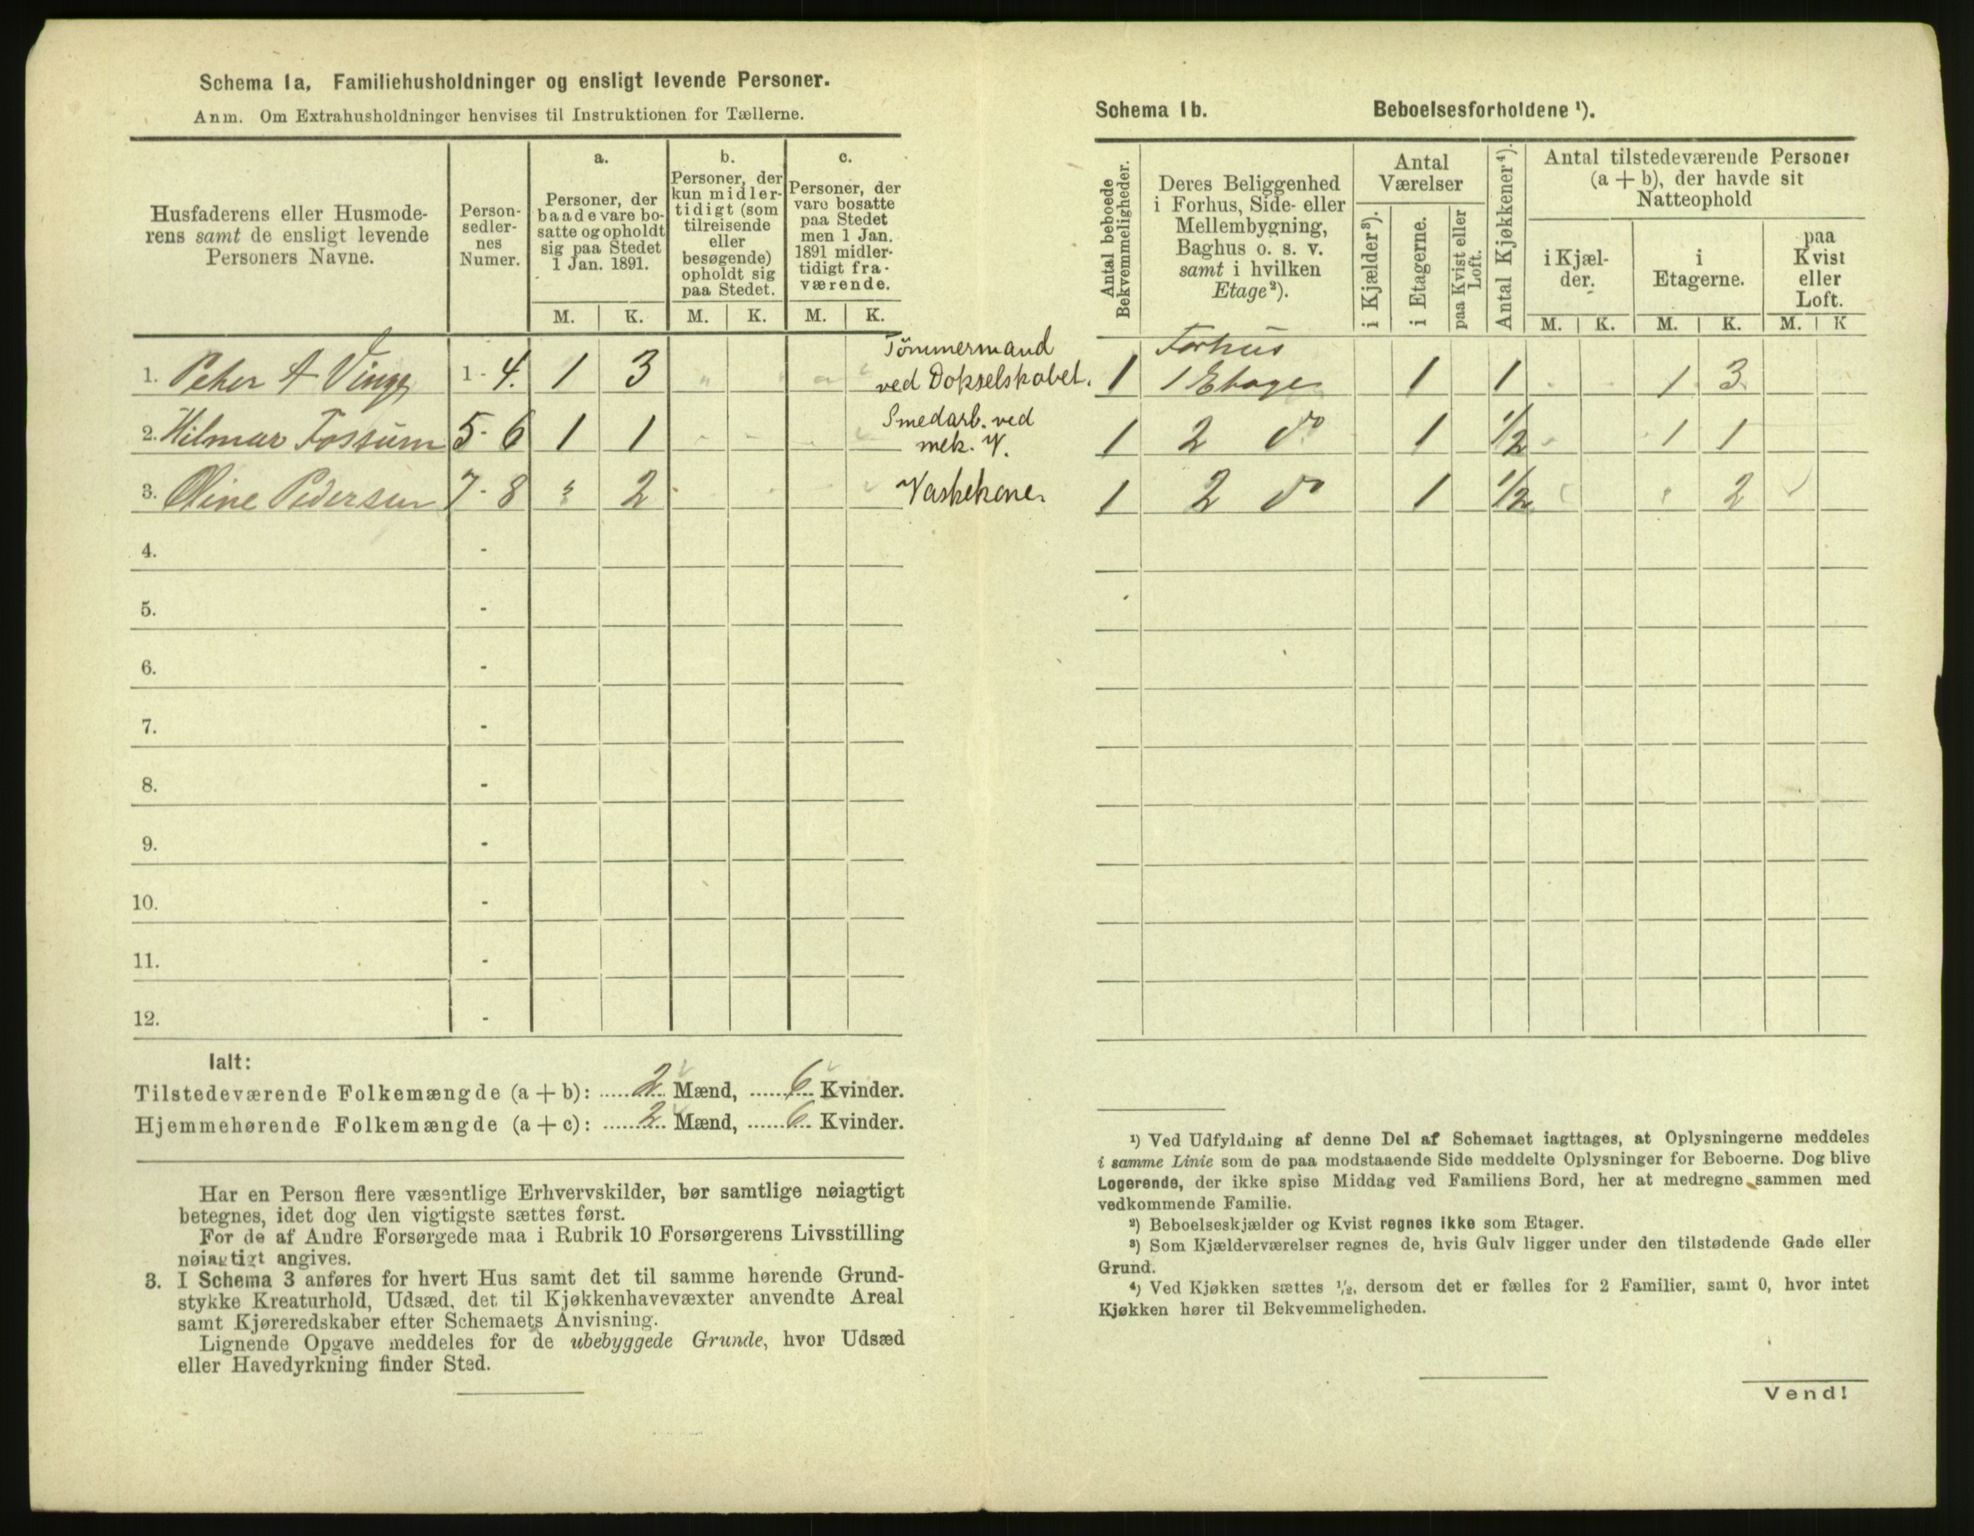 Schema 1a. Familiehusholdninger og ensligt levende Personer.
Anm. Om Extrahusholdninger henvises til Instruktionen for Tællerne.
Husfaderens eller Husmode-
rens samt de ensligt levende
Personers Navne.
Person-
sedler-
nes
Numer.
a.
Personer, der
baade vare bo-
satte og opholdt
sig paa Stedet
1 Jan. 1891.
b.
Personer, der
kun midler-
tidigt (som
tilreisende
eller
besøgende)
opholdt sig
paa Stedet.
c.
Personer, der
vare bosatte
paa Stedet
men 1 Jan.
1891 midler-
tidigt fra-
værende.
M. K. M. K. M. K.
1. Peter A Vinge 1 - 4. 1 3 Tömmermand
ved Dokselskabet.
2. Hilmar Fossum 5 - 6 1 1 Smedarb. ved
mek. V.
3. Oline Pedersen 7 - 8 2 Vaskekone.
4. -
5. -
6. -
7. -
8. -
9. -
10. -
11. -
12. -
Ialt:
Tilstedeværende Folkemængde (a + b): 2 Mænd, 6 Kvinder.
Hjemmehørende Folkemængde (a + c): 2 Mænd, 6 Kvinder.
Har en Person flere væsentlige Erhvervskilder, bør samtlige nøiagtigt
betegnes, idet dog den vigtigste sættes først.
For de af Andre Forsørgede maa i Rubrik 10 Forsørgerens Livsstilling
nøiagtigt angives.
3. I Schema 3 anføres for hvert Hus samt det til samme hørende Grund-
stykke Kreaturhold, Udsæd, det til Kjøkkenhavevæxter anvendte Areal
samt Kjøreredskaber efter Schemaets Anvisning.
Lignende Opgave meddeles for de ubebyggede Grunde, hvor Udsæd
eller Havedyrkning finder Sted.
Schema 1b. Beboelsesforholdene ¹).
Antal beboede
Bekvemmeligheder.
Deres Beliggenhed
i Forhus, Side- eller
Mellembygning,
Baghus o. s. v.
samt i hvilken
Etage²).
Antal
Værelser
i Kjælder³).
i Etagerne.
paa Kvist eller
Loft.
Antal Kjøkkener⁴).
Antal tilstedeværende Personer
(a + b), der havde sit
Natteophold
i Kjæl-
der.
i
Etagerne.
paa
Kvist
eller
Loft.
M. K. M. K. M. K
Forhus
1 1 Etage 1 1 1 3
1 2 do 1 1/2 1 1
1 2 do 1 1/2 2
¹) Ved Udfyldning af denne Del af Schemaet iagttages, at Oplysningerne meddeles
i samme Linie som de paa modstaaende Side meddelte Oplysninger for Beboerne. Dog blive
Logerende, der ikke spise Middag ved Familiens Bord, her at medregne sammen med
vedkommende Familie.
²) Beboelseskjælder og Kvist regnes ikke som Etager.
³) Som Kjælderværelser regnes de, hvis Gulv ligger under den tilstødende Gade eller
Grund.
⁴) Ved Kjøkken sættes ½, dersom det er fælles for 2 Familier, samt 0, hvor intet
Kjøkken hører til Bekvemmeligheden.
Vend!